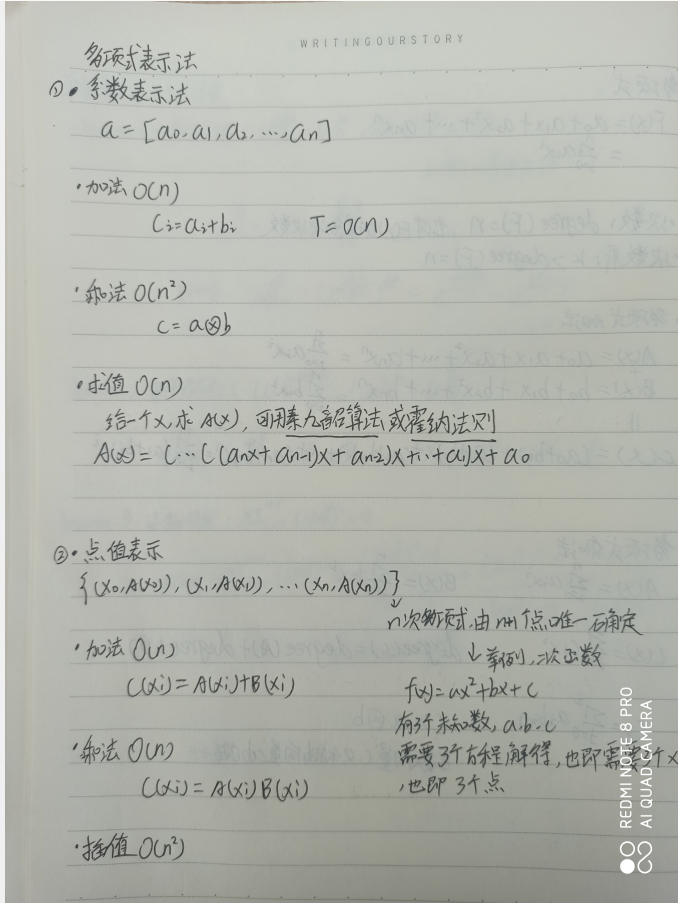 WRITINGOURSTORY
多项式表示法
①·系数表示法
a=[a0,a1,a2,…,an]
·加法 O(n)
Ci=ai+bi T=O(n)
·乘法 O(n²)
c=a⊗b
·求值 O(n)
给一个x,求A(x),可用秦九韶算法或霍纳法则
A(x)=(…((anx+an-1)x+an-2)x+…+a1)x+a0
②·点值表示
{(x0,A(x0)),(x1,A(x1)),…(xn,A(xn))}
↓
n次多项式,由n+1个点唯一确定
·加法 O(n)
↓举例,二次函数
C(xi)=A(xi)+B(xi)
f(x)=ax²+bx+c
有3个未知数,a.b.c
·乘法 O(n)
需要3个方程解得,也即需要3个x
C(xi)=A(xi)B(xi)
,也即3个点
·插值 O(n²)
REDMI NOTE 8 PRO
AI QUAD CAMERA